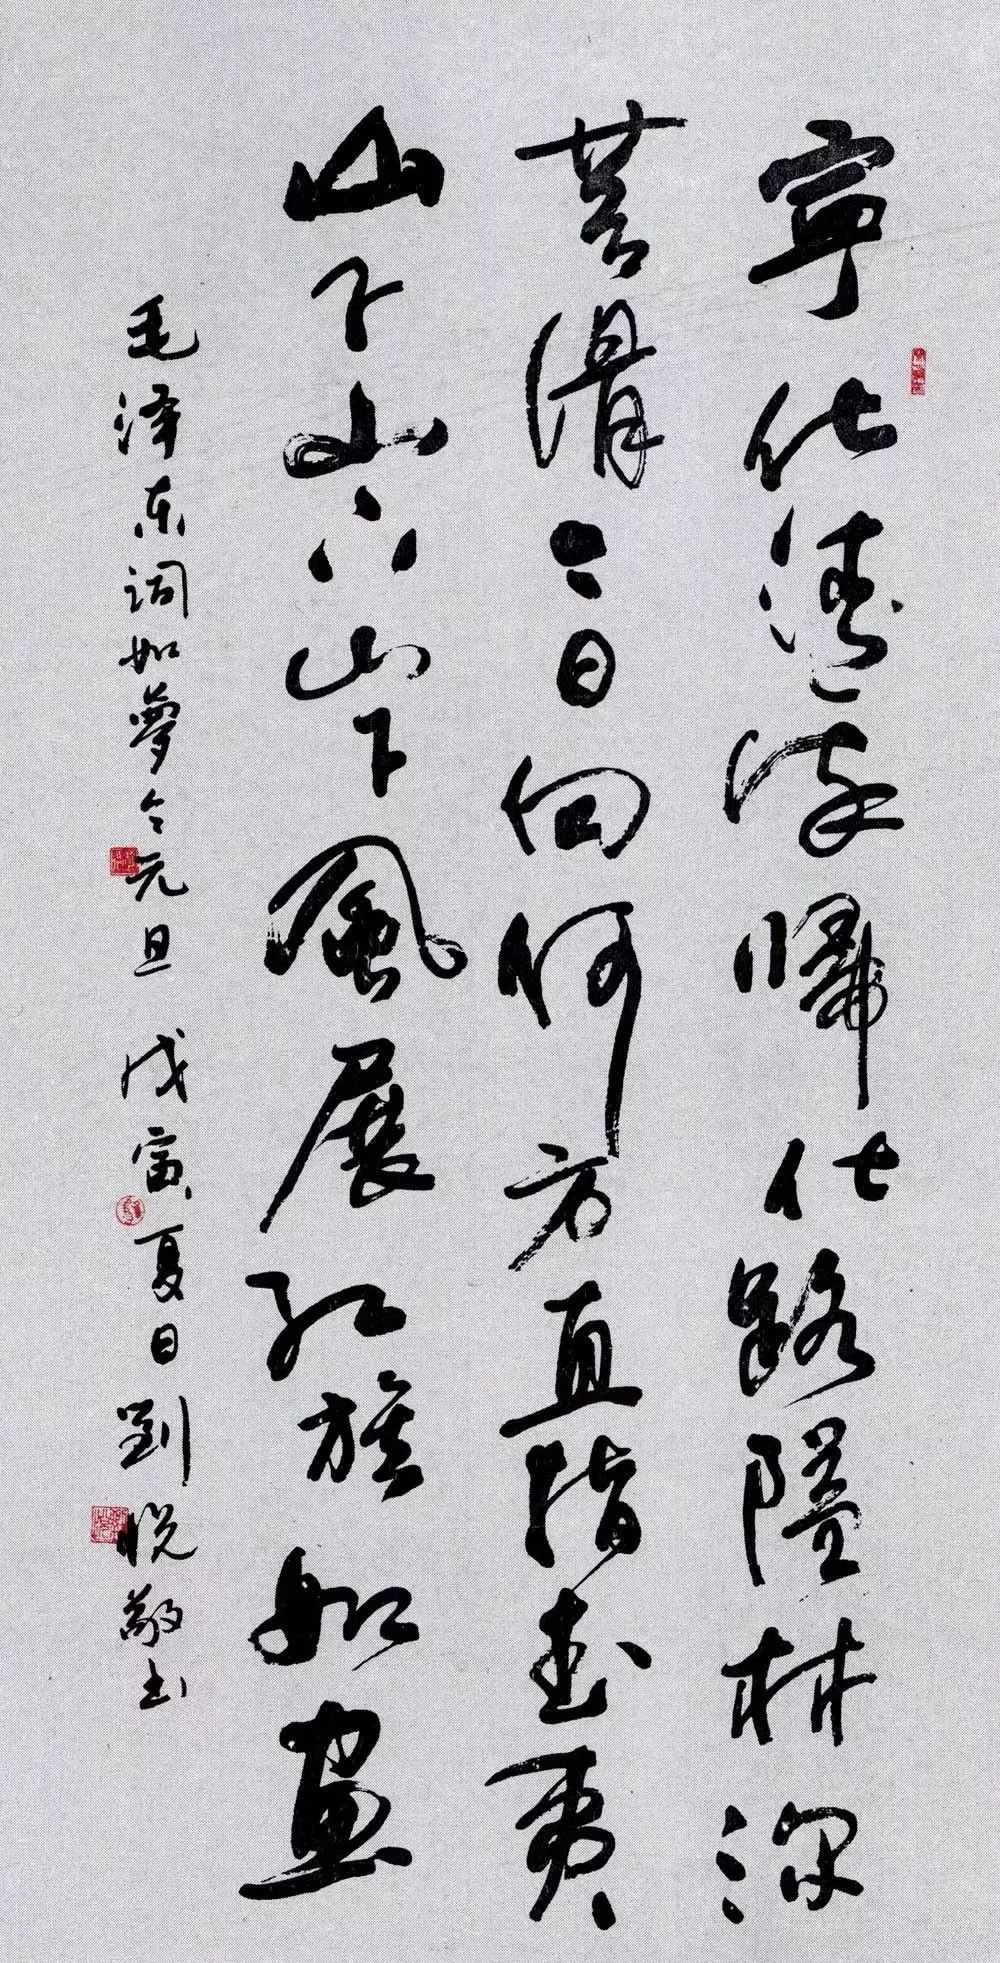 寧化清流歸化路隘林深
苔滑今日向何方直指武夷
山下山下山下風展红旗如畫
毛泽东词如梦令元旦 戊寅夏日劉悦敬书